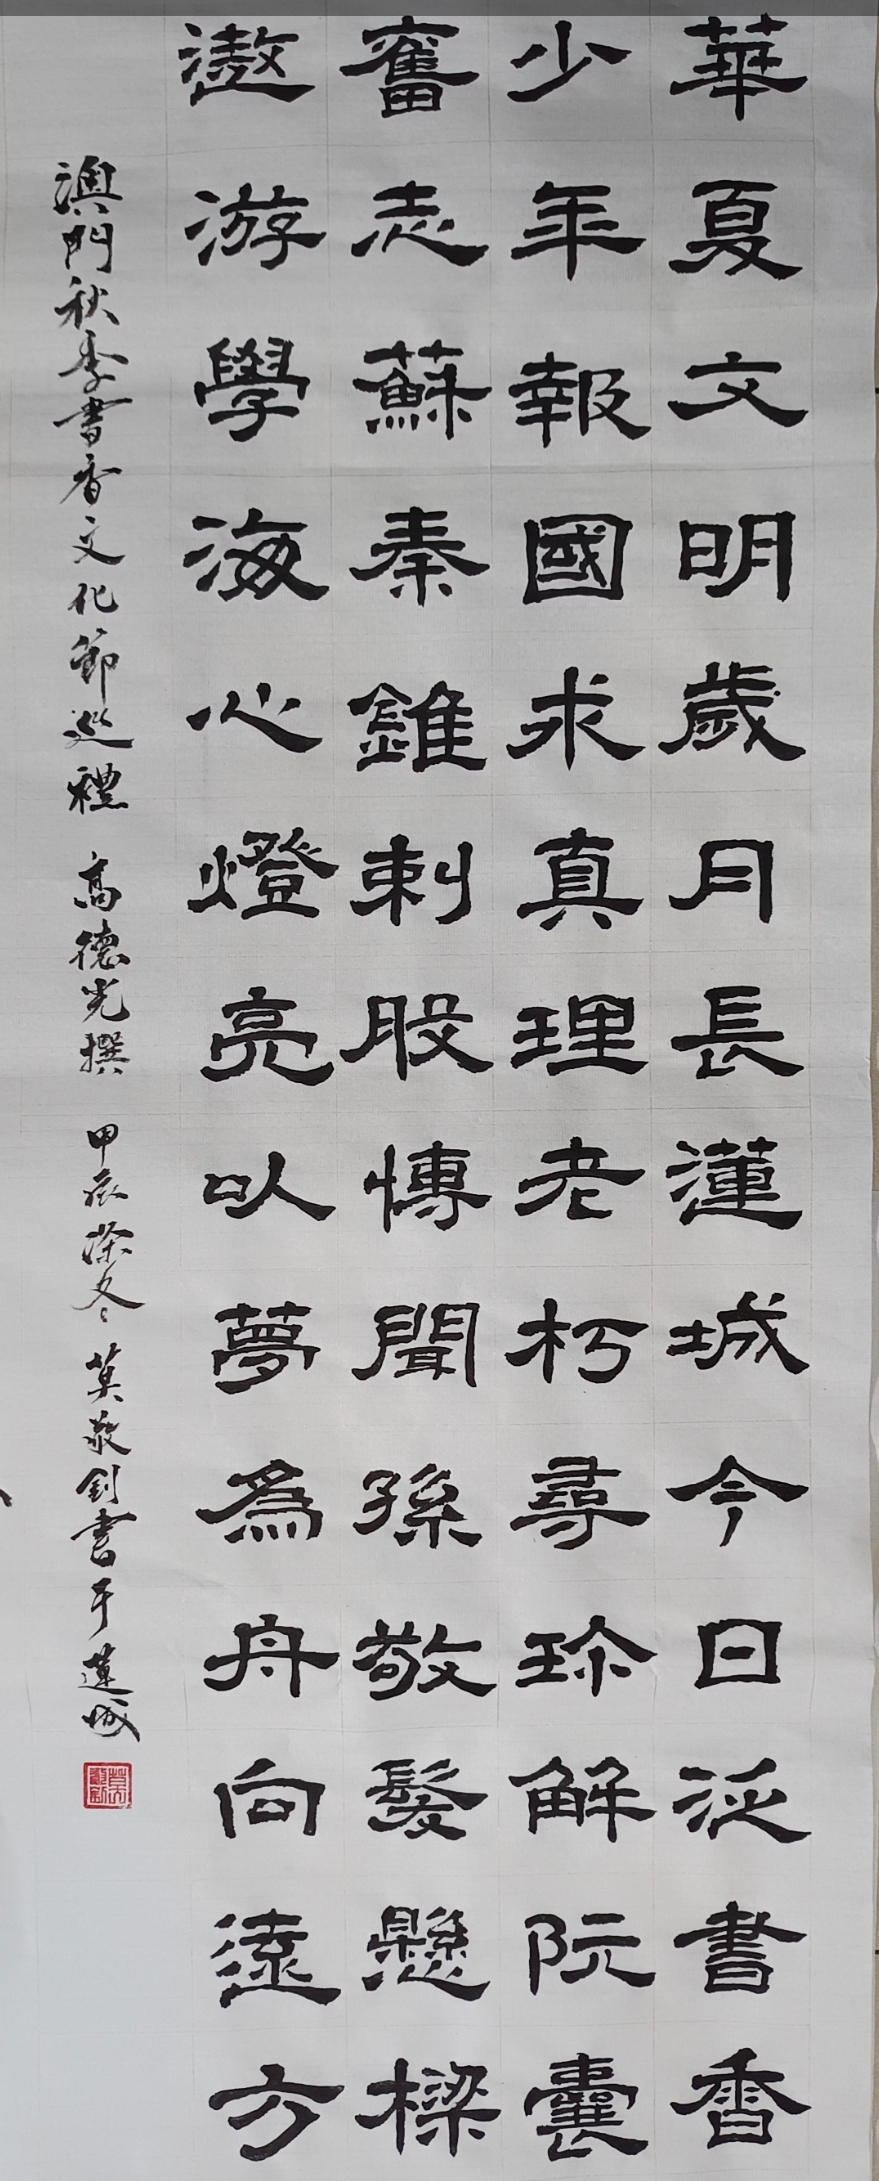 華夏文明歲月長蓮城今日泛書香
少年報國求真理老朽尋珍解阮囊
奮志蘇秦錐刺股博聞孫敬髮懸樑
遨游學海心燈亮以夢為舟向遠方
澳門秋季書香文化節巡禮 高德光撰 甲辰深冬 莫敬釗書于蓮城